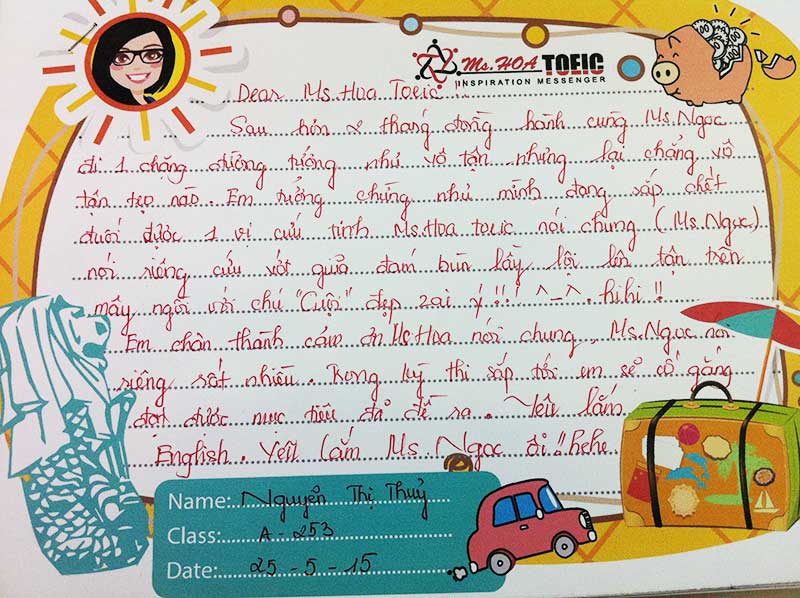 Ms. HOA TOEIC
INSPIRATION MESSENGER
Dear Ms Hoa Toeic !!
Sau hơn 2 tháng đồng hành cùng Ms.Ngọc
đi 1 chặng đường tưởng như vô tận nhưng lại chẳng vô
tận tẹo nào. Em tưởng chừng như mình đang sắp chết
đuối được 1 vị cứu tinh Ms.Hoa toeic nói chung (Ms.Ngọc)
nói riêng cứu vớt giữa đám bùn lầy lội lên tận trên
mấy ngồi với chú "Cuội" đẹp zai ý !!! ^_^. hihi !!
Em chân thành cám ơn Ms Hoa nói chung, Ms.Ngọc nói
riêng rất nhiều. Trong kỳ thi sắp tới em sẽ cố gắng
đạt được mục tiêu đã đề ra. Yêu lắm
English. Yêu lắm Ms. Ngọc ơi !! hehe
Name: Nguyễn Thị Thuỷ
Class: A - 253
Date: 25 - 5 - 15